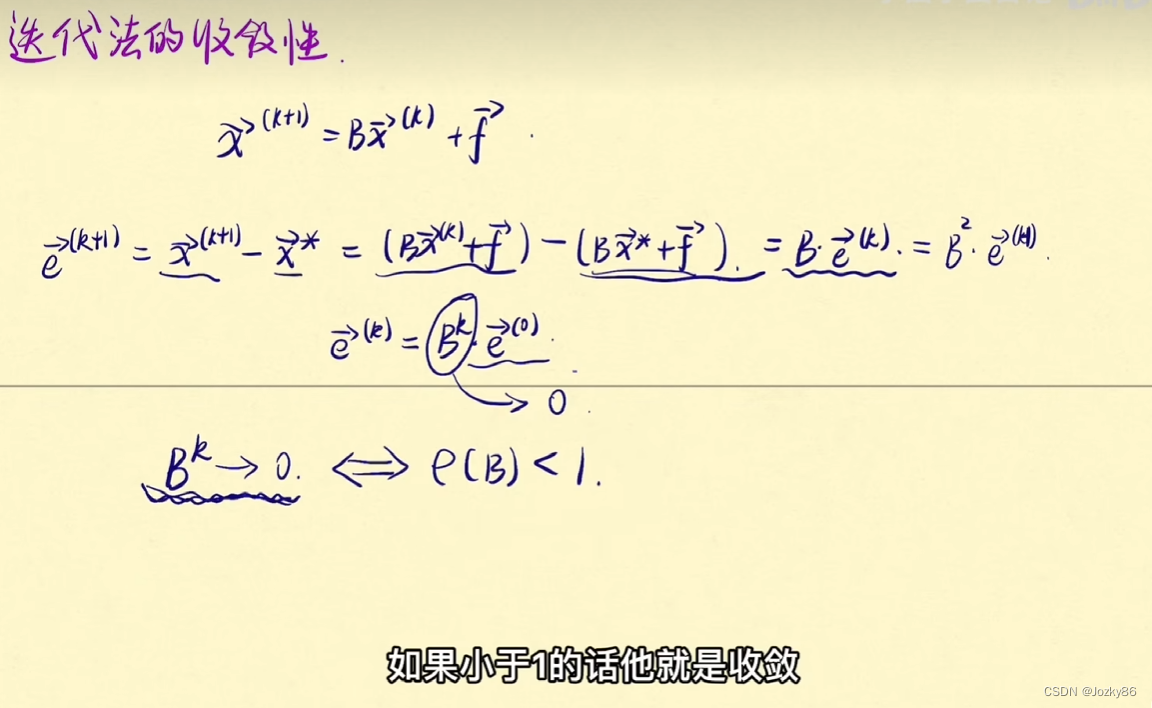 迭代法的收敛性.
x⃗^(k+1) = Bx⃗^(k) + f⃗.
e⃗^(k+1) = x⃗^(k+1) - x⃗* = (Bx⃗^(k) + f⃗) - (Bx⃗* + f⃗). = B·e⃗^(k). = B²·e⃗^(k-1).
e⃗^(k) = B^k·e⃗^(0).
→ 0.
B^k → 0. ⟺ ρ(B) < 1.
如果小于1的话他就是收敛
CSDN @Jozky86